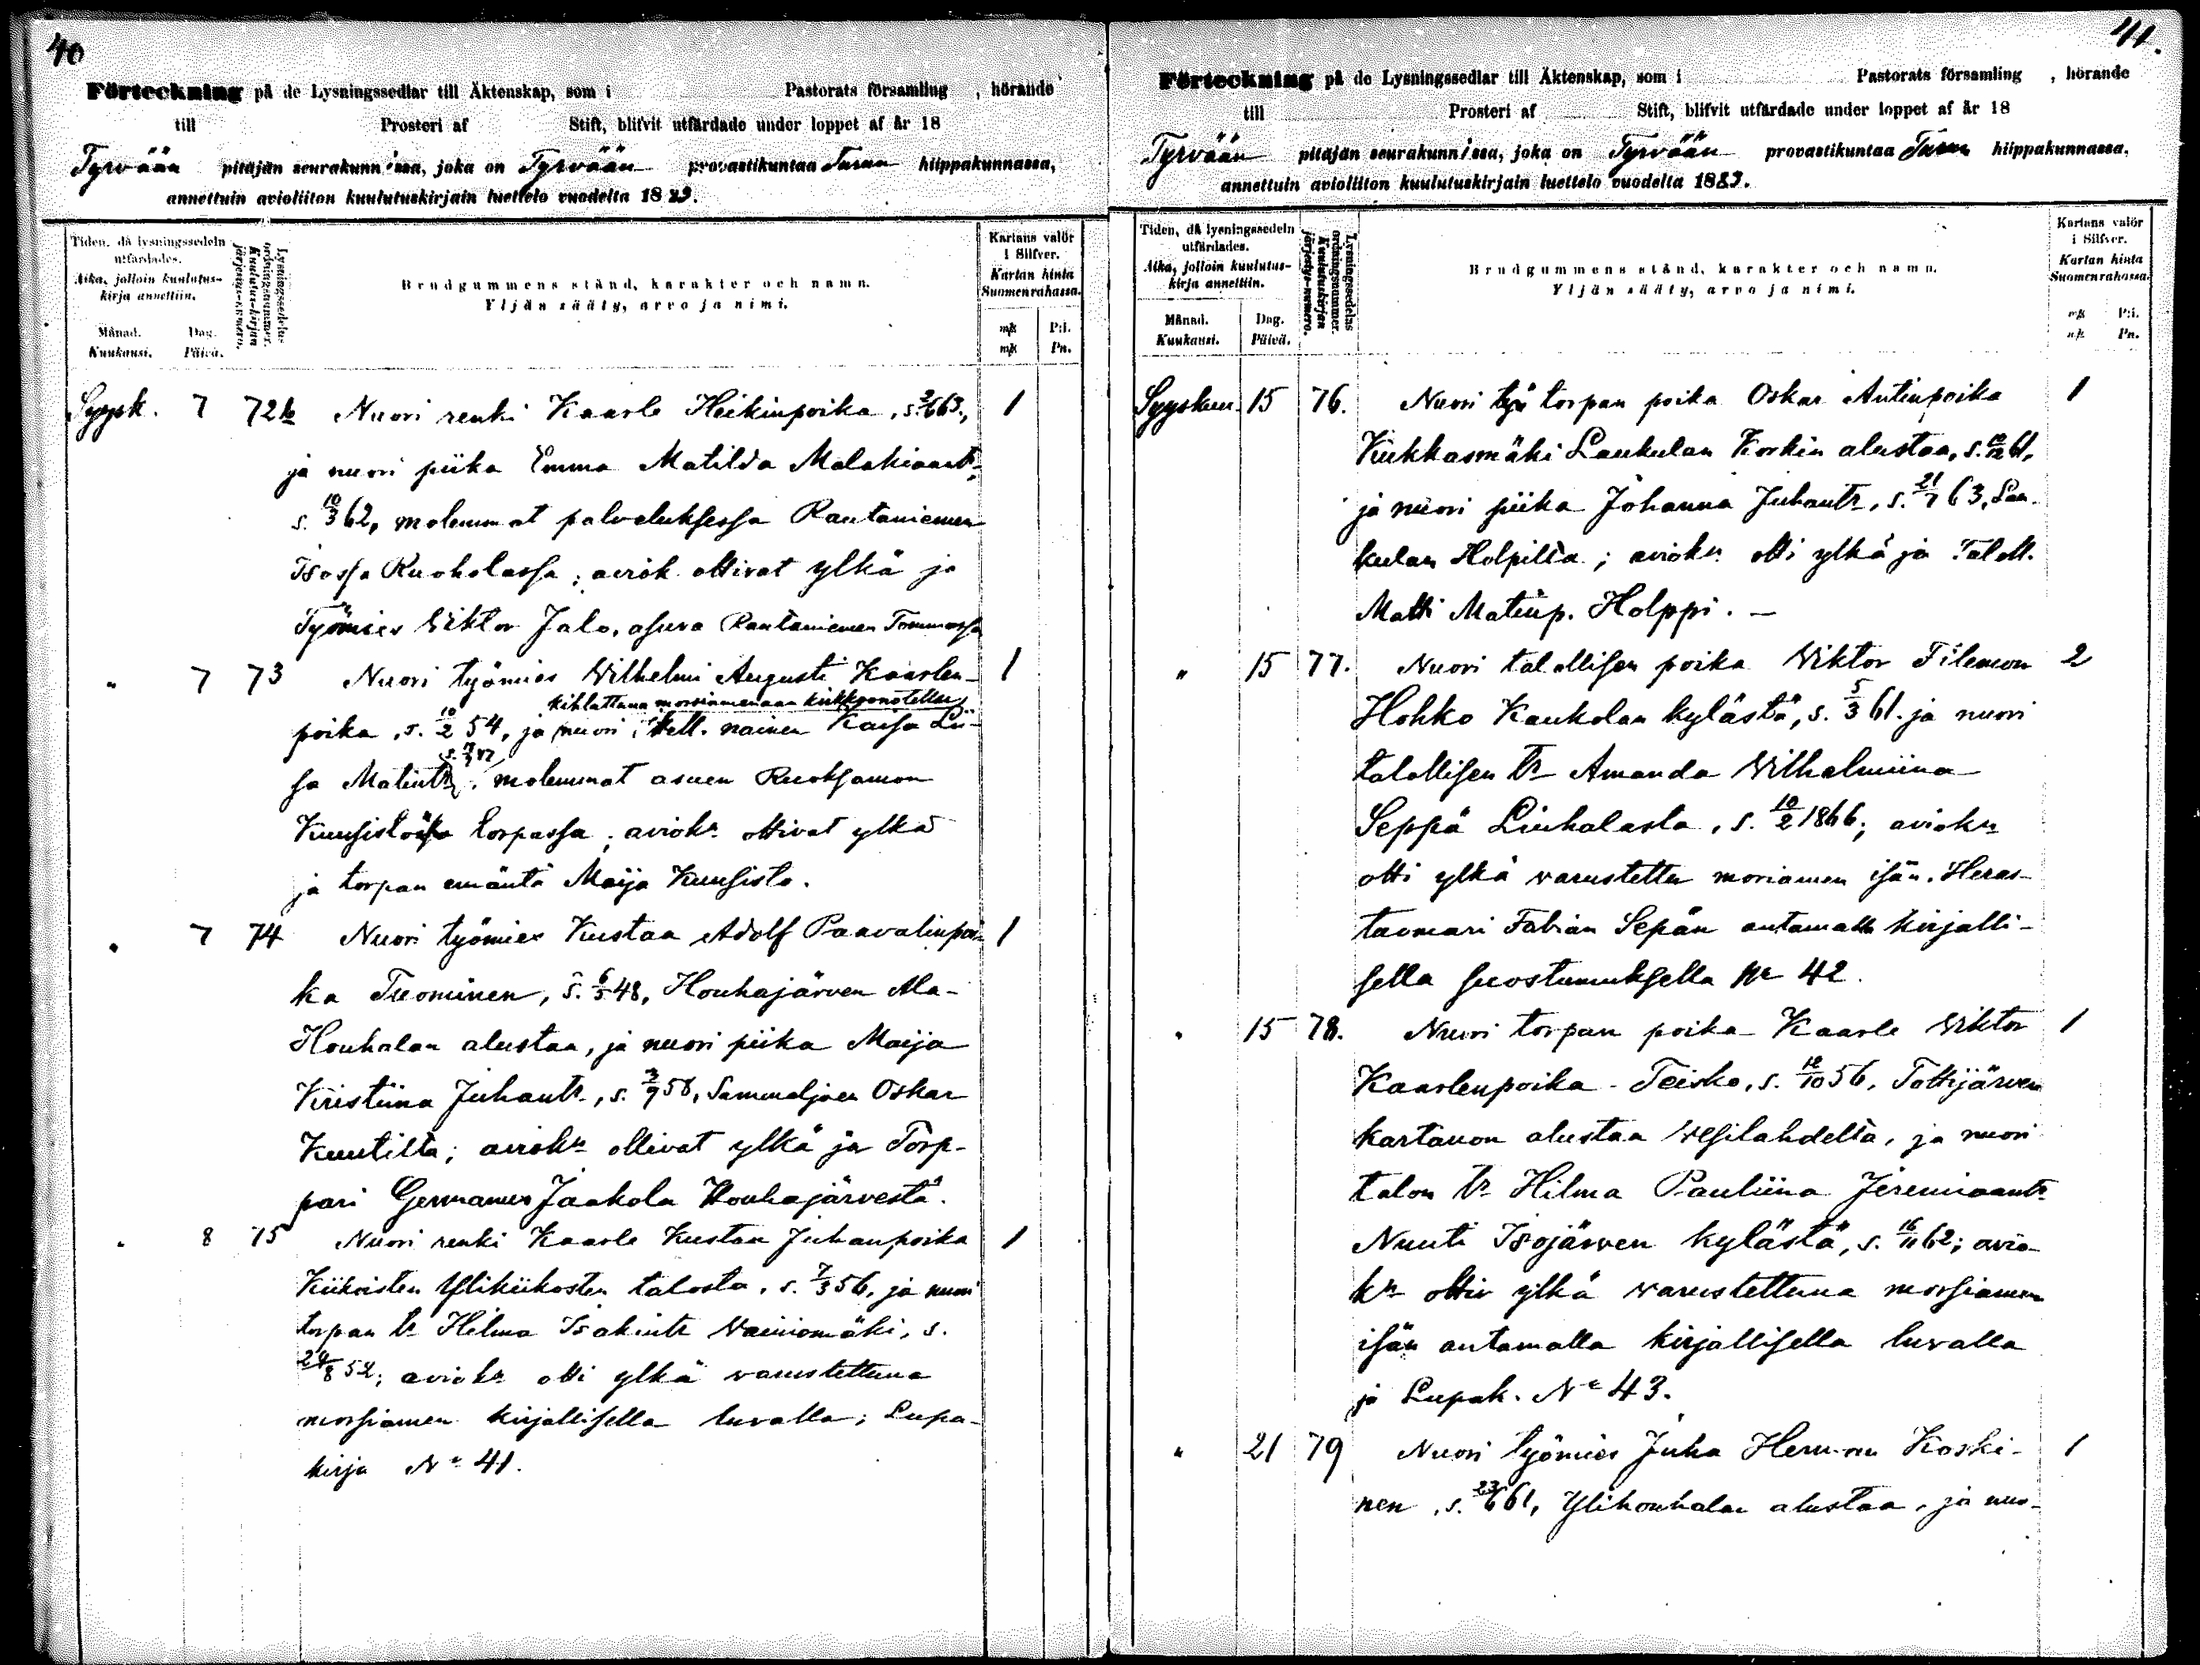 40
Förteckning på de Lysningssedlar till Äktenskap, som i Pastorats församling , hörande
till Prosteri af Stift, blifvit utfärdade under loppet af år 18
Tyrvään pitäjän seurakunnissa, joka on Tyrvään provastikuntaa Turun hiippakunnassa,
annettuin avioliiton kuulutuskirjain luettelo vuodelta 1883.
Tiden, då lysningssedeln utfärdades.
Aika, jolloin kuulutus-kirja annettiin.
Månad. Dag.
Kuukausi. Päivä.
Lysningssedelns ordningsnummer.
Kuulutus-kirjan järjestys-numero.
Brudgummens stånd, karakter och namn.
Yljän sääty, arvo ja nimi.
Kartans valör i Silfver.
Kartan hinta Suomenrahassa.
mk P:i.
mk Pn.
Syysk. 7 72 Nuori renki Kaarle Heikinpoika, s. 63, 1
ja nuori piika Emma Matilda Malakiaantr,
s. 10/3 62, molemmat palveluksessa Rautaniemen
Isossa Ruoholassa; aviok. ottivat ylkä ja
Työmies Viktor Jalo, asuva Rautaniemen Tommossa
" 7 73 Nuori työmies Wilhelmi Augusti Kaarlen- 1
kihlattuna morsiamenaan kirkkoonotettu
poika, s. 10/2 54, ja nuori itsell. nainen Kaisa Lii-
sa Matintr, molemmat asuen Ruoksamon
Kuusistossa torpassa; aviokr ottivat ylkä
ja torpan emäntä Maija Kuusisto.
" 7 74 Nuori työmies Kustaa Adolf Paavalinpoi- 1
ka Tuominen, s. 6/5 48, Houhajärven Ala-
Houhalan alustaa, ja nuori piika Maija
Kristiina Juhantr, s. 3/9 58, Sammaljoen Oskar
Kuutilta; aviokr ottivat ylkä ja Torp-
pari Germanus Jaakola Houhajärvestä.
" 8 75 Nuori renki Kaarle Kustaa Juhanpoika 1
Kiikoisten Ylikiikosten talosta, s. 7/3 56, ja nuori
torpan tr Hilma Isakintr Vainiomäki, s.
24/8 52; aviokr otti ylkä varustettuna
morsiamen kirjallisella luvalla; Lupa-
kirja No 41.
41.
Förteckning på de Lysningssedlar till Äktenskap, som i Pastorats församling , hörande
till Prosteri af Stift, blifvit utfärdade under loppet af år 18
Tyrvään pitäjän seurakunnissa, joka on Tyrvään provastikuntaa Turun hiippakunnassa,
annettuin avioliiton kuulutuskirjain luettelo vuodelta 1883.
Tiden, då lysningssedeln utfärdades.
Aika, jolloin kuulutus-kirja annettiin.
Månad. Dag.
Kuukausi. Päivä.
Lysningssedelns ordningsnummer.
Kuulutuskirjan järjestys-numero.
Brudgummens stånd, karakter och namn.
Yljän sääty, arvo ja nimi.
Kartans valör i Silfver.
Kartan hinta Suomenrahassa.
mk P:i.
mk Pn.
Syyskuu 15 76. Nuori torpan poika Oskar Antinpoika 1
Kukkasmäki Laukulan Korkin alustaa, s. 10/12 61,
ja nuori piika Johanna Juhantr, s. 21/7 63, Lau-
kulan Holpilta; aviokr otti ylkä ja Taloll.
Matti Matinp. Holppi. —
" 15 77. Nuori talollisen poika Viktor Filemon 2
Hohko Kaukolan kylästä, s. 5/3 61. ja nuori
talollisen tr Amanda Wilhelmiina
Seppä Liuhalasta, s. 10/2 1866; aviokr
otti ylkä varustettu moriamen isän, Heras-
tuomari Fabian Sepän antamalla kirjalli-
sella suostumuksella No 42.
" 15 78. Nuori torpan poika Kaarle Viktor 1
Kaarlenpoika Teisko, s. 12/10 56, Tottijärven
kartanon alustaa Vesilahdelta, ja nuori
talon tr Hilma Pauliina Jeremiaantr
Nuuti Isojärven kylästä, s. 16/11 62; avio-
kr otti ylkä varustettuna morsiamen
isän antamalla kirjallisella luvalla
ja Lupak. No 43.
" 21 79 Nuori työmies Juha Herman Koski- 1
nen, s. 23/6 61, Ylihouhalan alustaa, ja nuo-